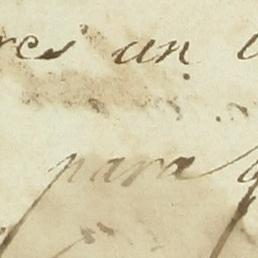 res un
para